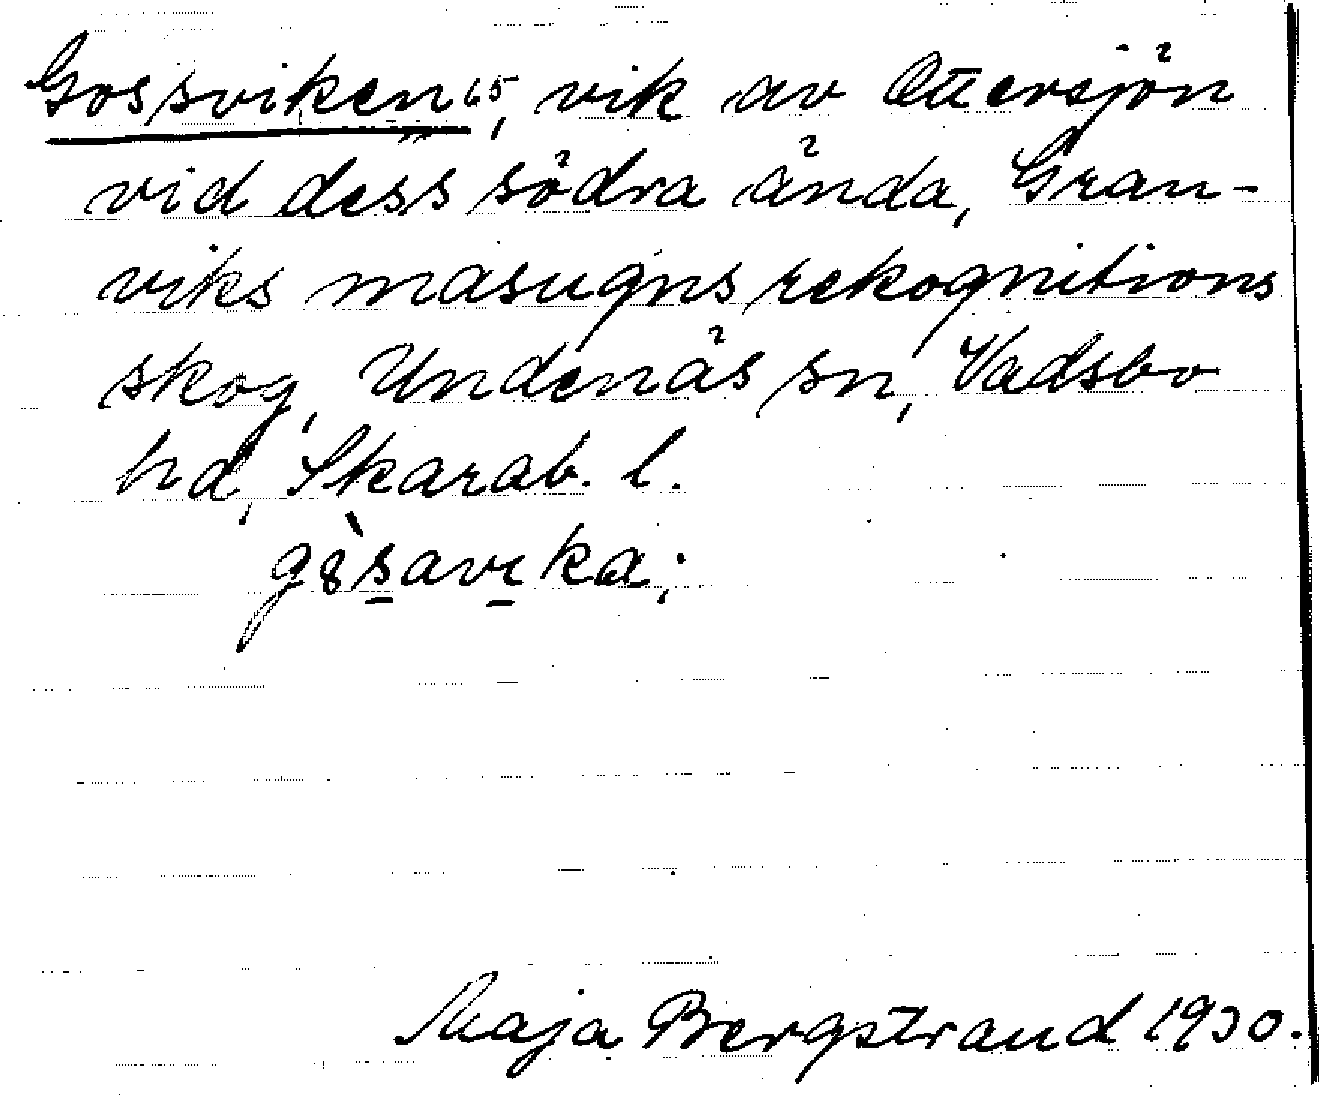 Gossviken 65, vik av Ottersjön
vid dess södra ända, Gran-
viks masugns rekognitions
skog, Undenäs sn, Vadsbo
hd, Skarab. l.
g8̀savıka;
Maja Bergstrand 1930.